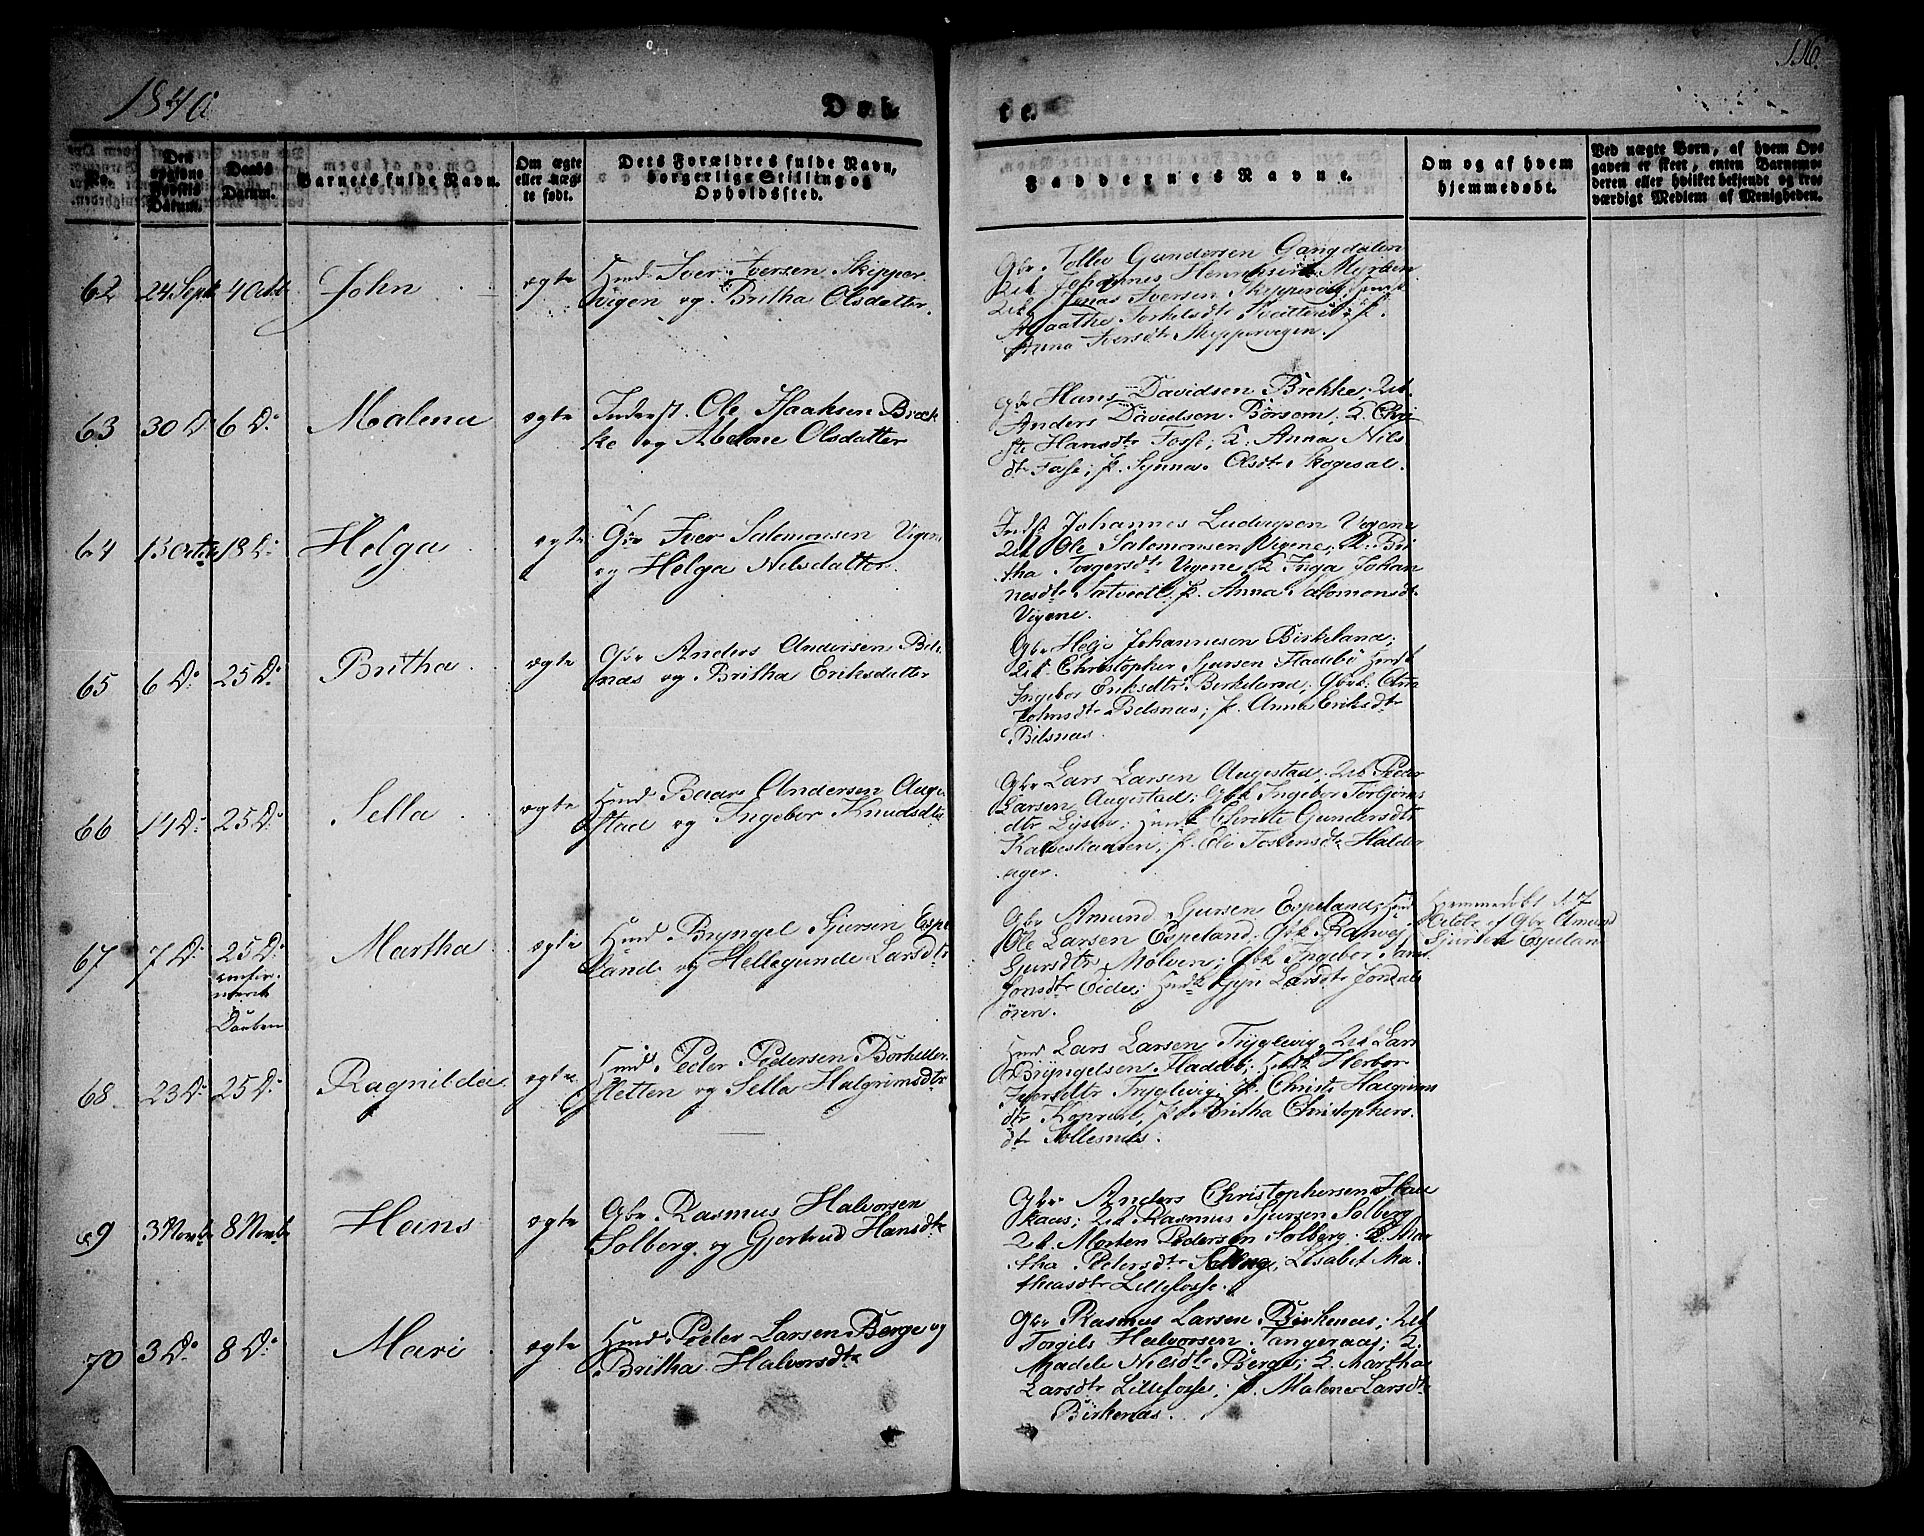 1840.
116.
Døb
te.
No.
Den opgivne Fødsels Datum.
Daabs Datum.
Barnets fulde Navn.
Om ægte eller uægte født.
Dets Forældres fulde Navn, borgerlige Stilling og Opholdssted.
Faddernes Navne.
Om og af hvem hjemmedøbt.
Ved uægte Børn, af hvem Opgaven er skeet, enten Barnemoderen eller hvilket bekjendt og troværdigt Medlem af Menigheden.
62
24 Septb
4 Octb
John
ægte
Hmd: Iver Iversen Skipper
vigen og Britha Olsdatter.
Gbr. Tollev Gundersen Gangdalen
Johannes Myrben
Jonas Iversen
Agathe Torkelsdtr
Anna Iversdtr Skippervigen.
63
30 D:
6 D:
Malena
ægte
Inderst. Ole Isaaksen Bræk
ke og Abelone Olsdatter
Gbr Hans Davidsen Brekke, Uk
Anders Davidsen Börsom, K. Chri
ste Hansdtr Fosse; K. Anna Nils
dtr Fosse; p. Synna Olsdtr Skogesal.
64
15 Octb
18 D:
Helga
ægte
Gbr Iver Salomonsen Vigene
og Helga Nilsdatter.
Indst Johannes Ludvigsen Vigene
Uk Ole Salomonsen Vigene, K. Bri
tha Torgersdtr Vigene, K Inga Johan
nesdtr p. Anna Salomonsdtr
Vigene.
65
6 D:
25 D:
Britha
ægte
Gbr Anders Andersen Bels
næs og Britha Eriksdatter
Gbr Helje Johannesen Birkeland;
Uk. Christopher Sjursen Fladebö
Ingebor Eriksdtr Birkeland, Gbrk.
Johnsdtr Belsnæs; p. Anna Eriksdtr
Belsnæs.
66
14 D:
25 D:
Sella
ægte
Hmd Baar Andersen Auge
stad og Ingebor Knudsdtr
Gbr Lars Larsen Augestad, Uk Peder
Larsen Augestad; Gbk Ingebor Torbjörns
dtr Lysen; Christe Gundersdtr
p. Torstensdtr Halder
ager.
67
7 D:
25 D:
confir
meret
Daaben
Martha
ægte
Hmd Bryngel Sjursen Espe
land og Hellegunde Larsdtr
Gbr Amund Sjursen Espeland, Hmd
Ole Larsen Espeland, Gbk Ranvej
Sjursdtr Mölven; Gbk Ingebor
Jonsdtr Eide; Gjyri Larsdtr Jondals
ören.
Hjemmedöbt d. 7
Octbr af Gbr Amund
Sjursen Espeland
68
23 D:
25 D:
Ragnilda
ægte
Hmd Peder Pedersen
sletten og Sella Halgrimsdtr
Hmd Lars Larsen Tryglevig, Uk Lars
Bryngelsen Fladebö; Herbor
Iversdtr Tryglevig; p. Christi Halgrims
dtr p. Britha Christophers
dtr Sollesnæs.
69
3 Novb
8 Novb
Hans
ægte
Gbr. Rasmus Halvorsen
Solberg og Gjertrud Hansdtr
Gbr Anders Christophersen
kaas; Uk Rasmus Sjursen Solberg,
Uk. Morten Pedersen Solberg. K. Mar
tha Pedersdtr Solberg, Lisabet Ma
theasdtr Lillefosse.
70
3 D:
8 D:
Mari
ægte
Hmd. Peder Larsen Berge og
Britha Halvorsdtr
Gbr Rasmus Larsen Birkenæs; Uk
Torgils Halvorsen Tangeraas; K.
Madele Nilsdtr Berge; K. Martha
Larsdtr Lillefosse; p. Malene Larsdtr
Birkenæs.